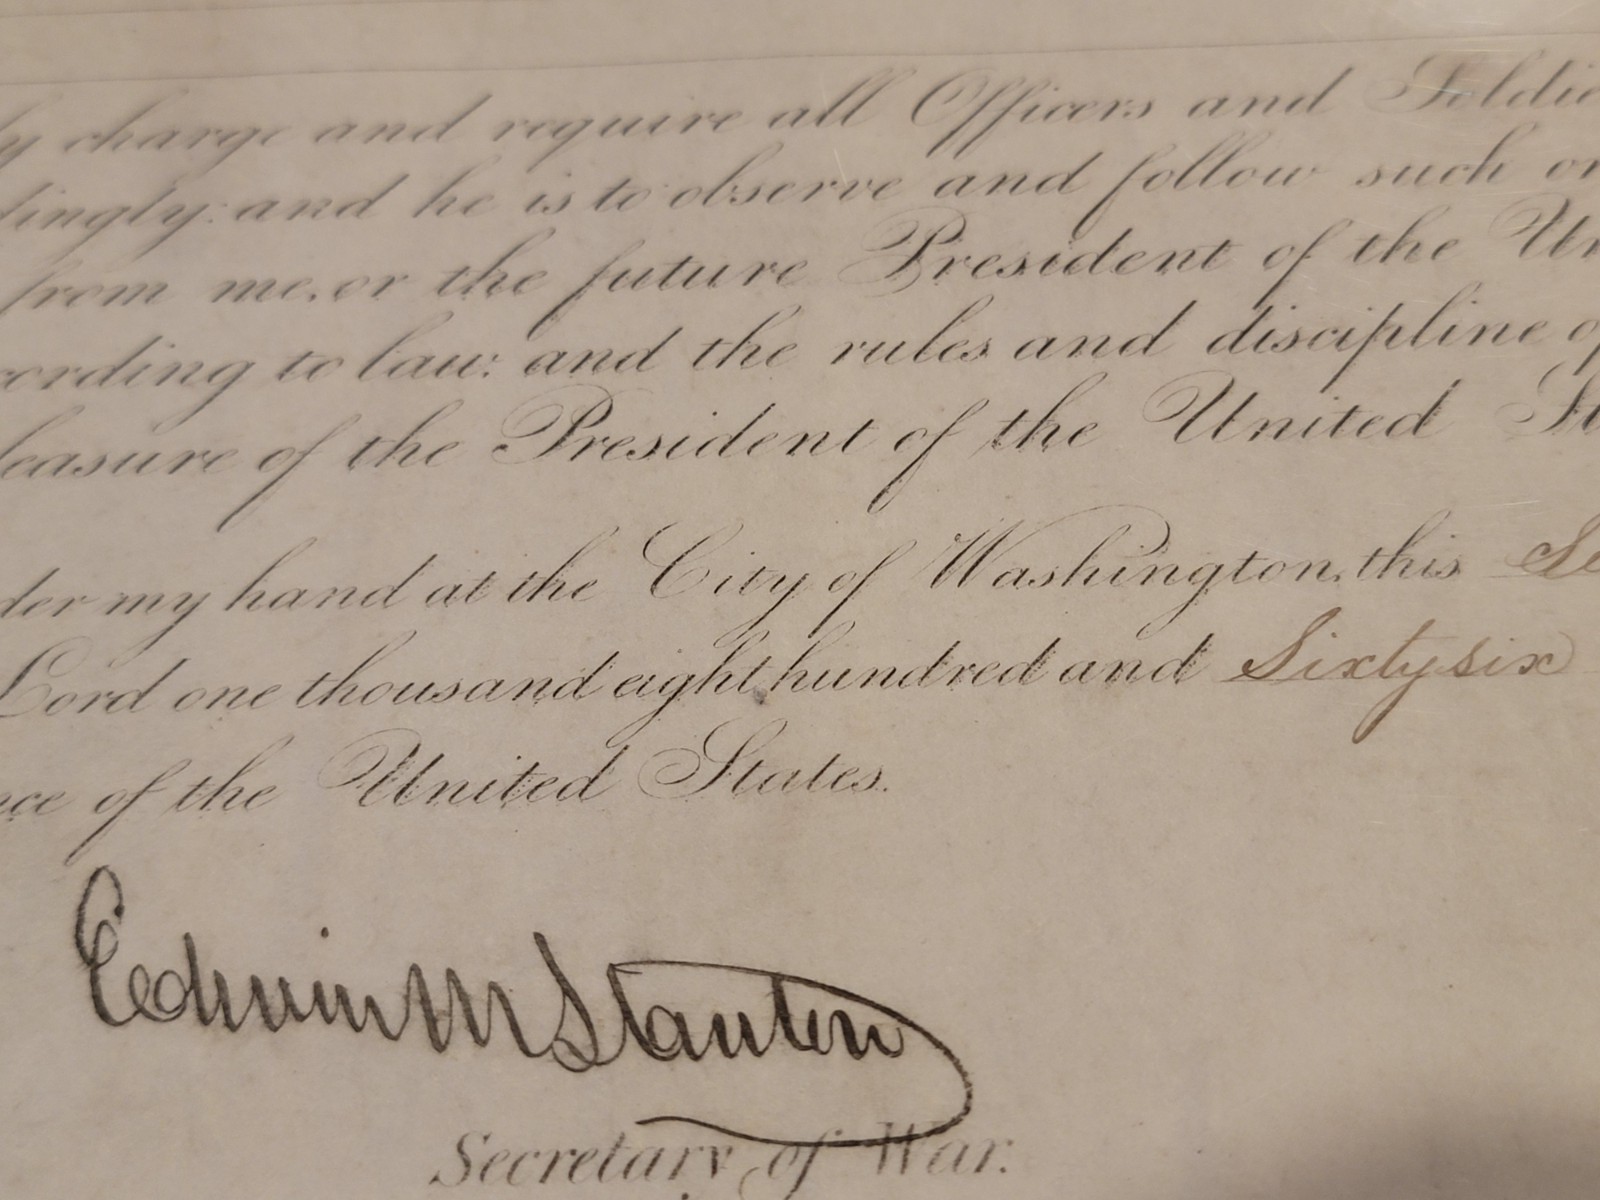 charge and require all Officers and
and he is to observe and follow such
from me, or the future President of the
to law: and the rules and discipline
of the President of the United
my hand at the City of Washington, this
Lord one thousand eight hundred and Sixty six
of the United States.
Edwin M Stanton
Secretary of War.